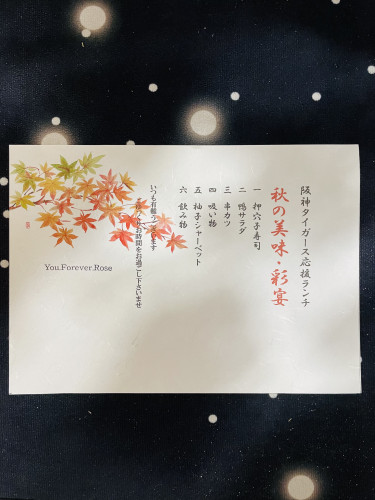 阪神タイガース応援ランチ
秋の美味・彩宴
一 押穴子寿司
二 鴨サラダ
三 串カツ
四 吸い物
五 柚子シャーベット
六 飲み物
いつも有難うございます
お時間をお過ごし下さいませ
You.Forever.Rose